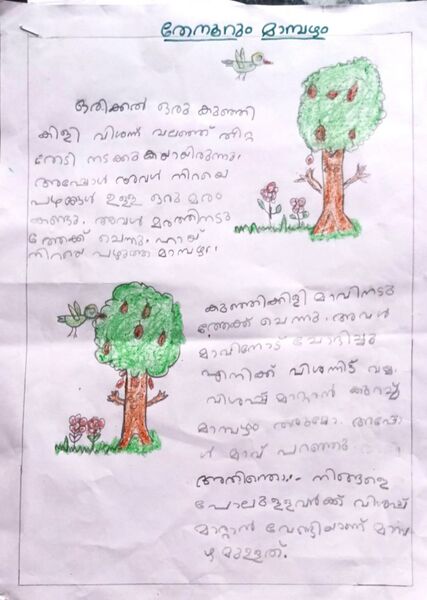 തേനൂറും മാമ്പഴം
ഒരിക്കൽ ഒരു കുഞ്ഞി
കിളി വിശന്ന് വലഞ്ഞ് തീറ്റ
തേടി നടക്കുകയായിരുന്നു.
അപ്പോൾ അവൾ നിറയെ
പഴങ്ങൾ ഉള്ള ഒരു മരം
കണ്ടു. അവൾ മരത്തിനടു
ത്തേക്ക് ചെന്നു. ഹായ്
നിറയെ പഴുത്ത മാമ്പഴം.
കുഞ്ഞിക്കിളി മാവിനടു
ത്തേക്ക് ചെന്നു. അവൾ
മാവിനോട് ചോദിച്ചു
എനിക്ക് വിശന്നിട് വയ്യ.
വിശപ്പ് മാറ്റാൻ കുറച്ച്
മാമ്പഴം തരുമോ. അപ്പോ
ൾ മാവ് പറഞ്ഞു
അതിന്തൊ- നിങ്ങളെ
പോലുള്ളവർക്ക് വിശപ്പ്
മാറ്റാൻ വേണ്ടിയാണ് മാമ്പ
ഴ മുള്ളത്.